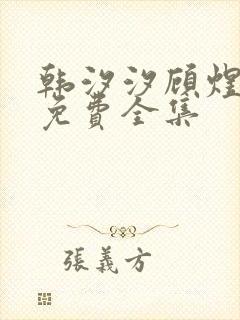 韩汐汐顾煜
免費全集
張義方